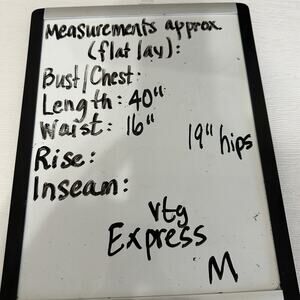 Measurements approx.
(flat lay):
Bust/Chest:
Length: 40"
Waist: 16"
19" hips
Rise:
Inseam:
vtg
Express
M